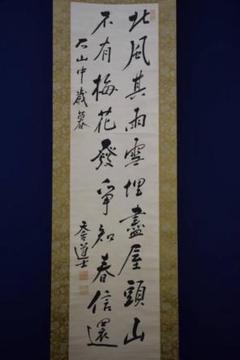 北風其雨雪埋盡屋頭山
不有梅花發爭知春信還
石山中歳暮